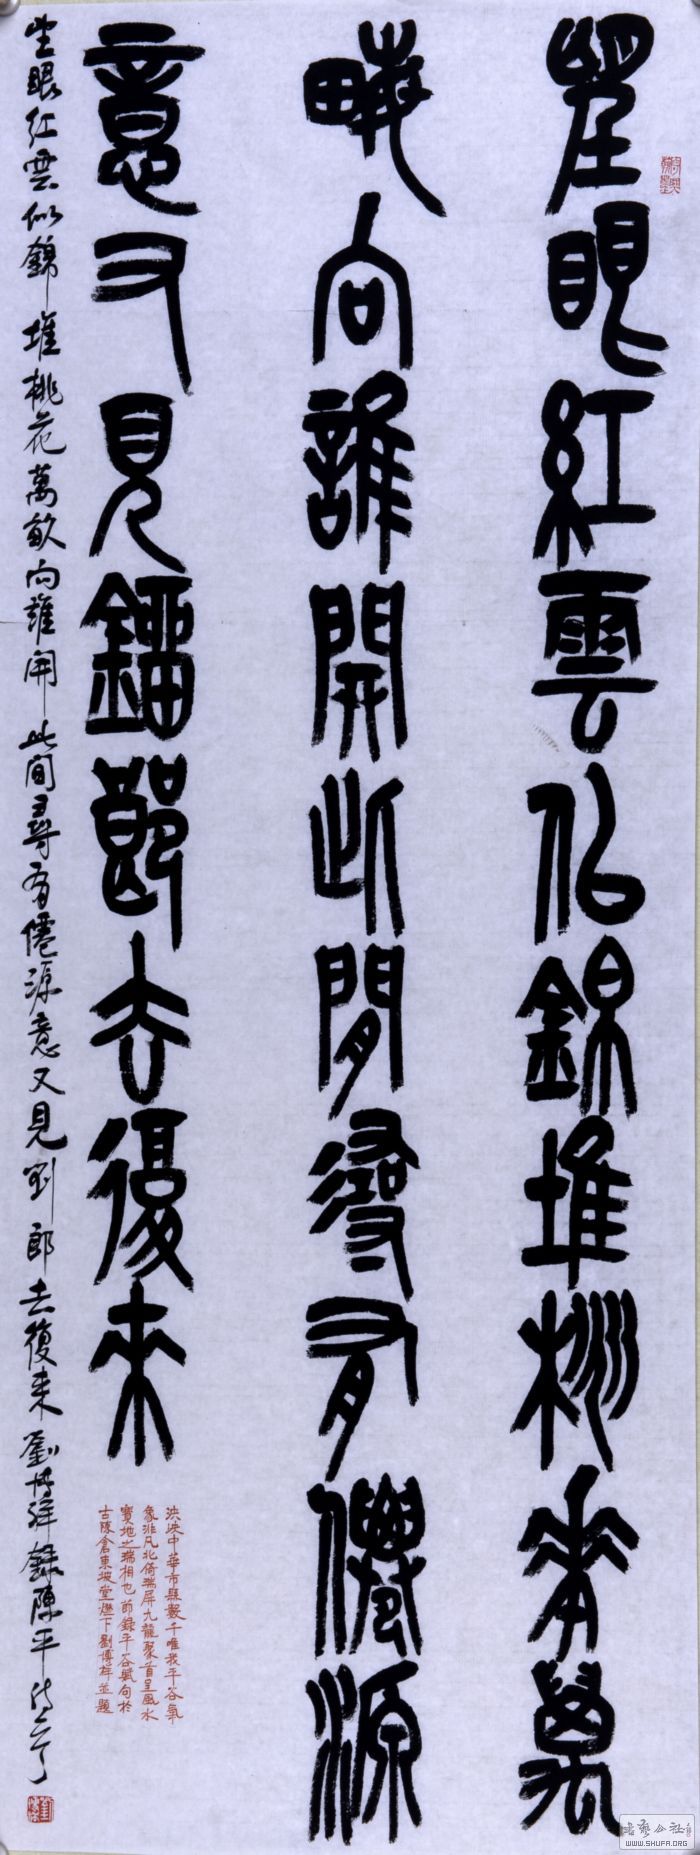 望眼紅雲似錦堆桃花萬
畝向誰開此間尋有僊源
意又見鐂郎去復来
洪泱中華市縣數千唯我平谷氣
象非凡北倚瑞屏九龍聚首呈風水
寶地之瑞相也節錄平谷賦句於
古陳倉東坡堂燈下劉博祥並題
望眼紅雲似錦堆桃花萬畝向誰開此間尋有僊源意又見劉郎去復来劉博祥錄陳平詩
WWW.SHUFA.ORG